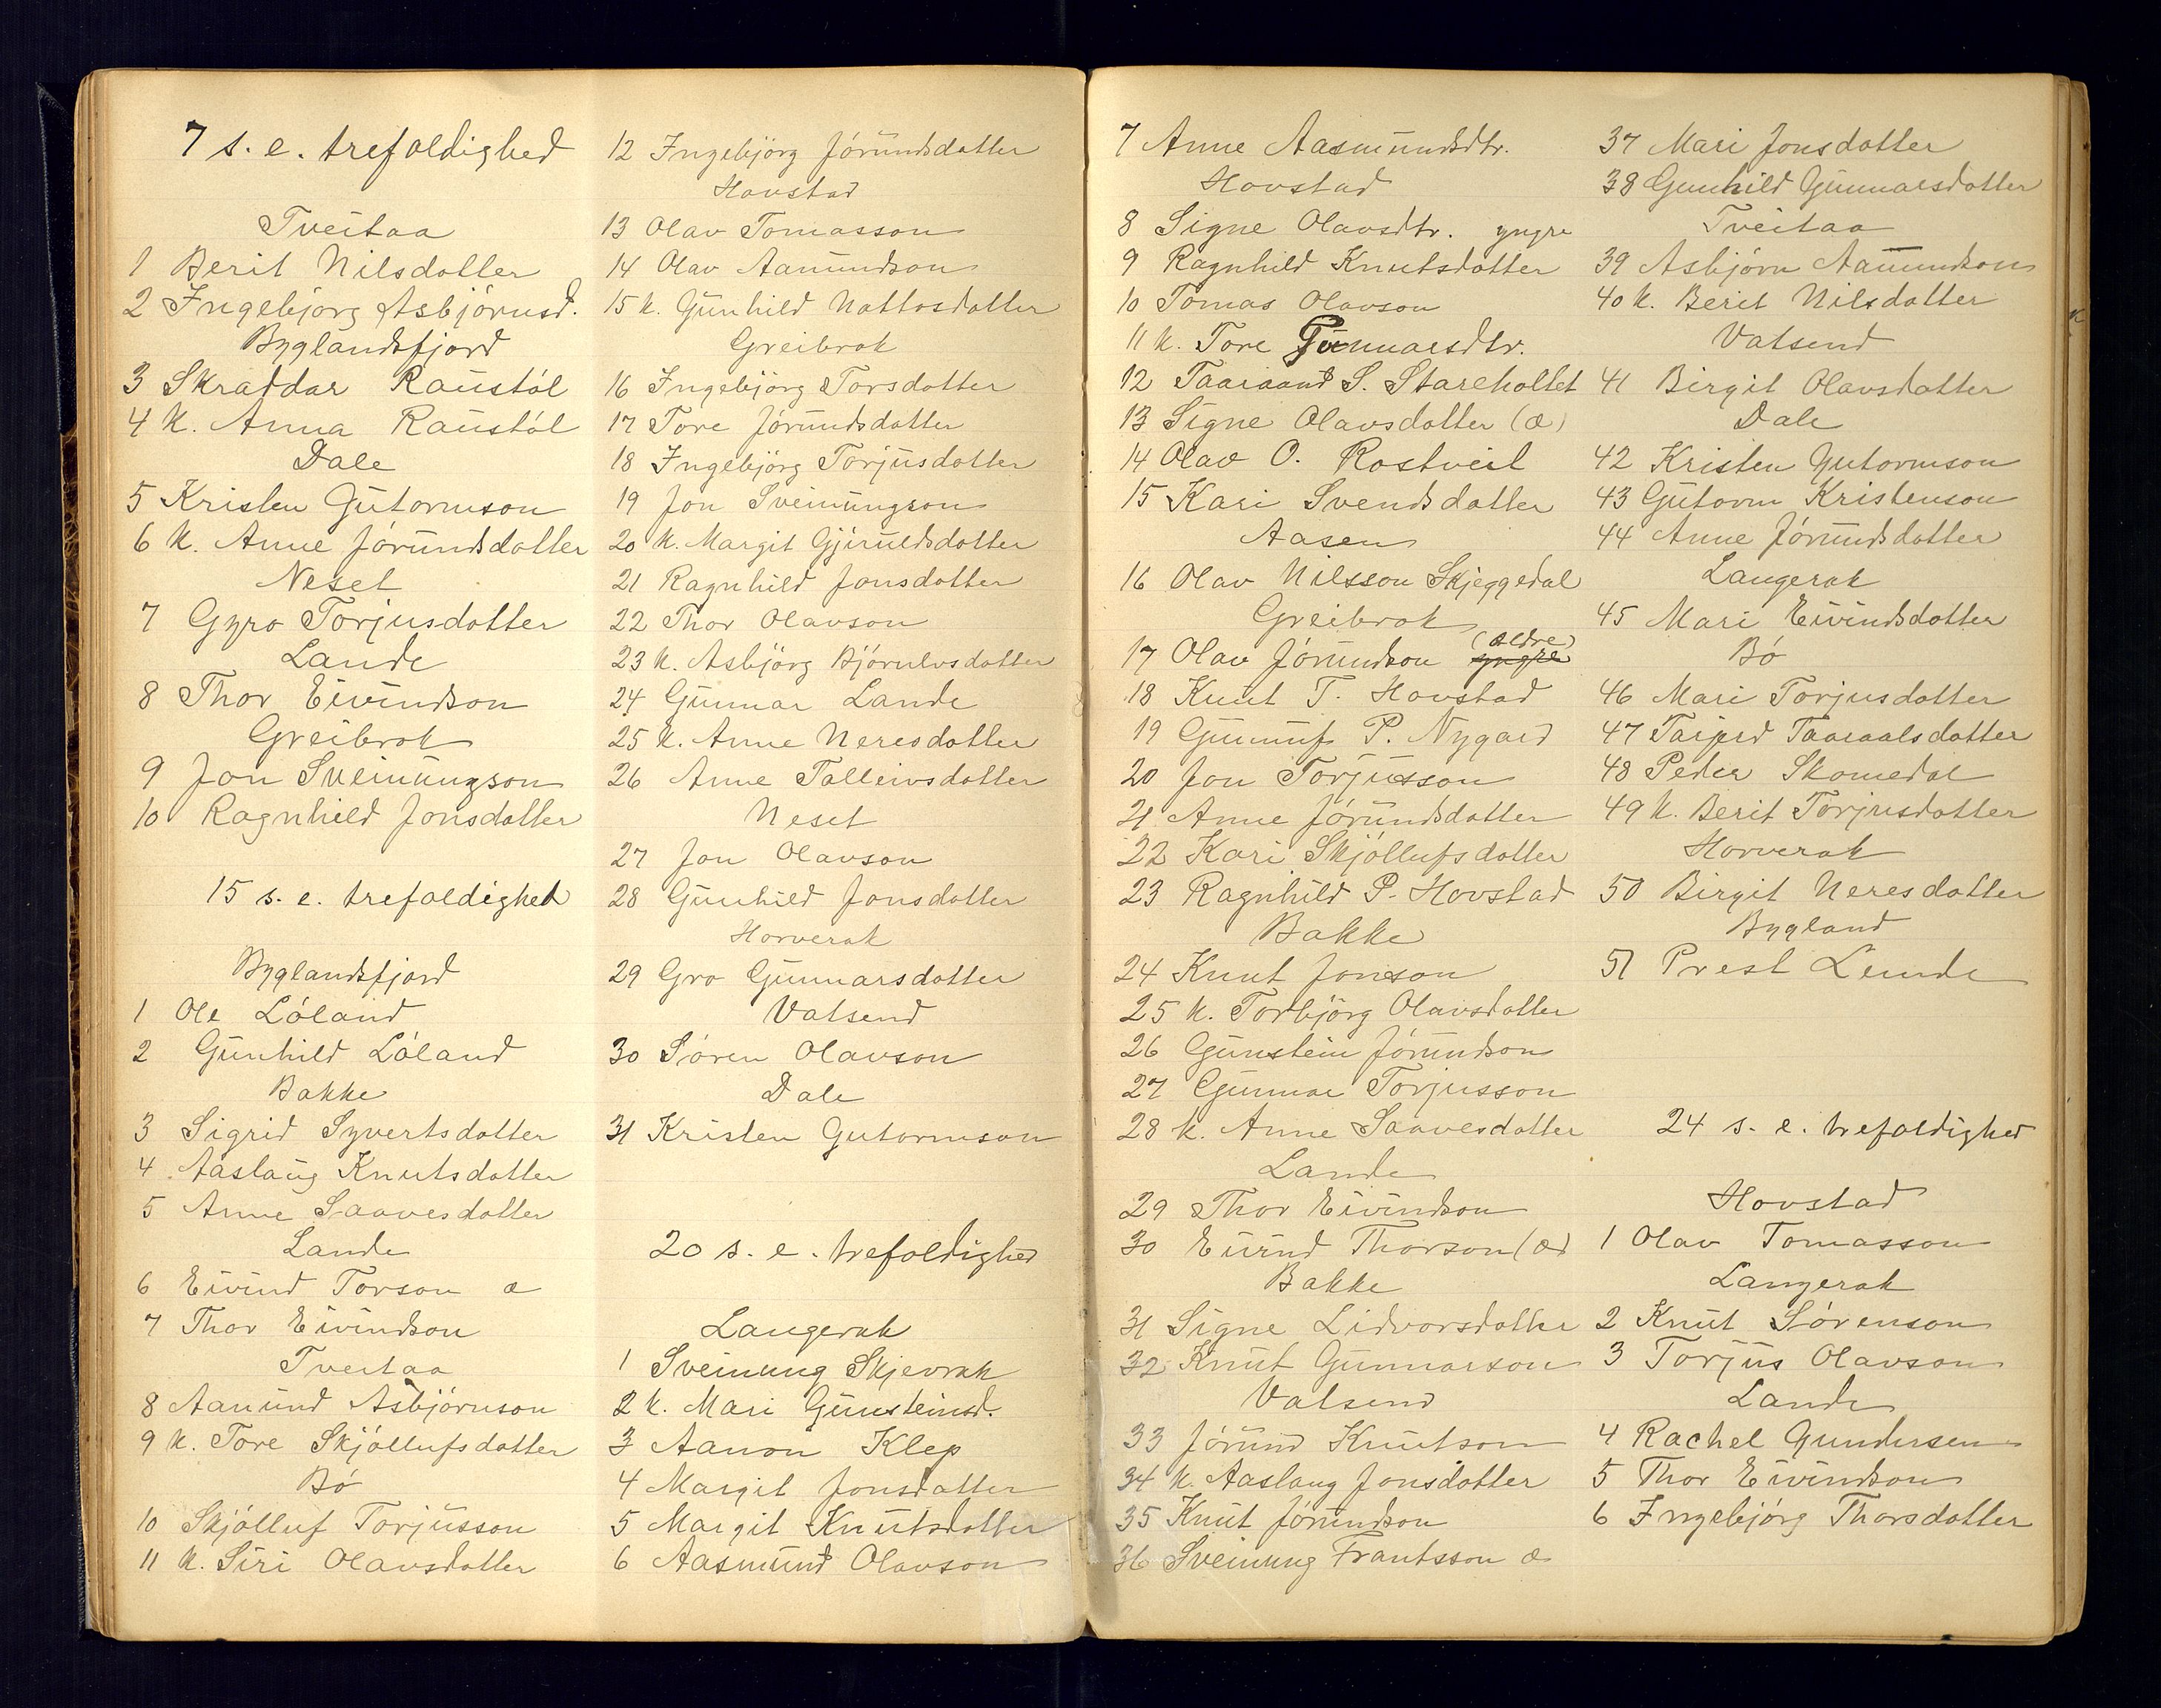 7 s. e. trefoldighed
Tveitaa
1 Berit Nilsdotter
2 Ingebjörg Asbjörnsd.
Byglandsfjord
3 Skraddar Raustöl
4 K. Anna Raustöl
Dale
5 Kristen Gutormson
6 K. Anne Jörundsdotter
Neset
7 Gyro Torjusdotter
Lande
8 Thor Eivindson
Greibrok
9 Jon Sveinungson
10 Ragnhild Jonsdotter
15 s. e. trefoldighed
Byglandsfjord
1 Ole Löland
2 Gunhild Löland
Bakke
3 Sigrid Syvertsdotter
4 Aaslaug Knutsdotter
5 Anne Saavesdotter
Lande
6 Eivind Torson æ
7 Thor Eivindson
Tveitaa
8 Aamund Asbjörnson
9 K. Tore Skjöllufsdotter
Bö
10 Skjölluf Torjusson
11 K. Siri Olavsdotter
12 Ingebjörg Jörundsdotter
Hovstad
13 Olav Tomasson
14 Olav Aamundson
15 K. Gunhild Nottosdotter
Greibrok
16 Ingebjörg Torsdotter
17 Tore Jörundsdotter
18 Ingebjörg Torjusdotter
19 Jon Sveinungson
20 K. Margit Gjeruldsdotter
21 Ragnhild Jonsdotter
22 Thor Olavson
23 K. Asbjörg Björnlvsdotter
24 Gunnar Lande
25 K. Anne Neresdotter
26 AnneТалleivsdotter
Neset
27 Jon Olavson
28 Gunhild Jonsdotter
Horverak
29 Gro Gunnarsdotter
Vatsend
30 Sören Olavson
Dale
31 Kristen Gutormson
20 s. e. trefoldighed
Langerak
1 Sveinung Skjevrak
2 K. Mari Gunsteinsd.
3 Aanon Klep
4 Margit Jonsdatter
5 Margit Knutsdotter
6 Aasmund Olavson
7 Anne Aasmundsdtr.
Hovstad
8 Signe Olavsdtr. yngre
9 Ragnhild Knutsdotter
10 Tomas Olavson
11 K. Tore Gunnarsdtr.
12 Taaraand S. Stareholtet
13 Signe Olavsdotter (æ)
14 Olav O. Rostveit
15 Kari Svendsdotter
Aasen
16 Olav Nilsson Skjeggedal
Greibrok
17 Olav Jörundson yngre (ældre)
18 Knut T. Hovstad
19 Gunnuf P. Nygard
20 Jon Torjusson
21 Anne Jörundsdotter
22 Kari Skjöllufsdotter
23 Ragnhild P. Hovstad
Bakke
24 Knut Jonson
25 K. Torbjörg Olavsdotter
26 Gunstein Jörundson
27 Gunnar Torjusson
28 K. Anne Saavesdotter
Lande
29 Thor Eivindson
30 Eivind Thorson (æ)
Bakke
31 Signe Lidvorsdotter
32 Knut Gunnarson
Vatsend
33 Jörund Knutson
34 K. Aaslaug Jonsdotter
35 Knut Jörundson
36 Sveinung Frantsson æ
37 Mari Jonsdotter
38 Gunhild Gunnarsdotter
Tveitaa
39 Asbjörn Aamundson
40 K. Berit Nilsdatter
Vatsend
41 Birgit Olavsdatter
Dale
42 Kristen Gutormson
43 Gutorm Kristenson
44 Anne Jörundsdotter
Langerak
45 Mari Eivindsdotter
Bö
46 Mari Torjusdotter
47 Taraalsdotter
48 Peder Skomedal
49 K. Berit Torjusdotter
Horverak
50 Birgit Neresdotter
Bygland
51 Prest Lunde
24 s. e. trefoldighed
Hovstad
1 Olav Tomasson
Langerak
2 Knut Sörenson
3 Torjus Olavson
Lande
4 Rachel Gundersen
5 Thor Eivindson
6 Ingebjörg Thorsdotter